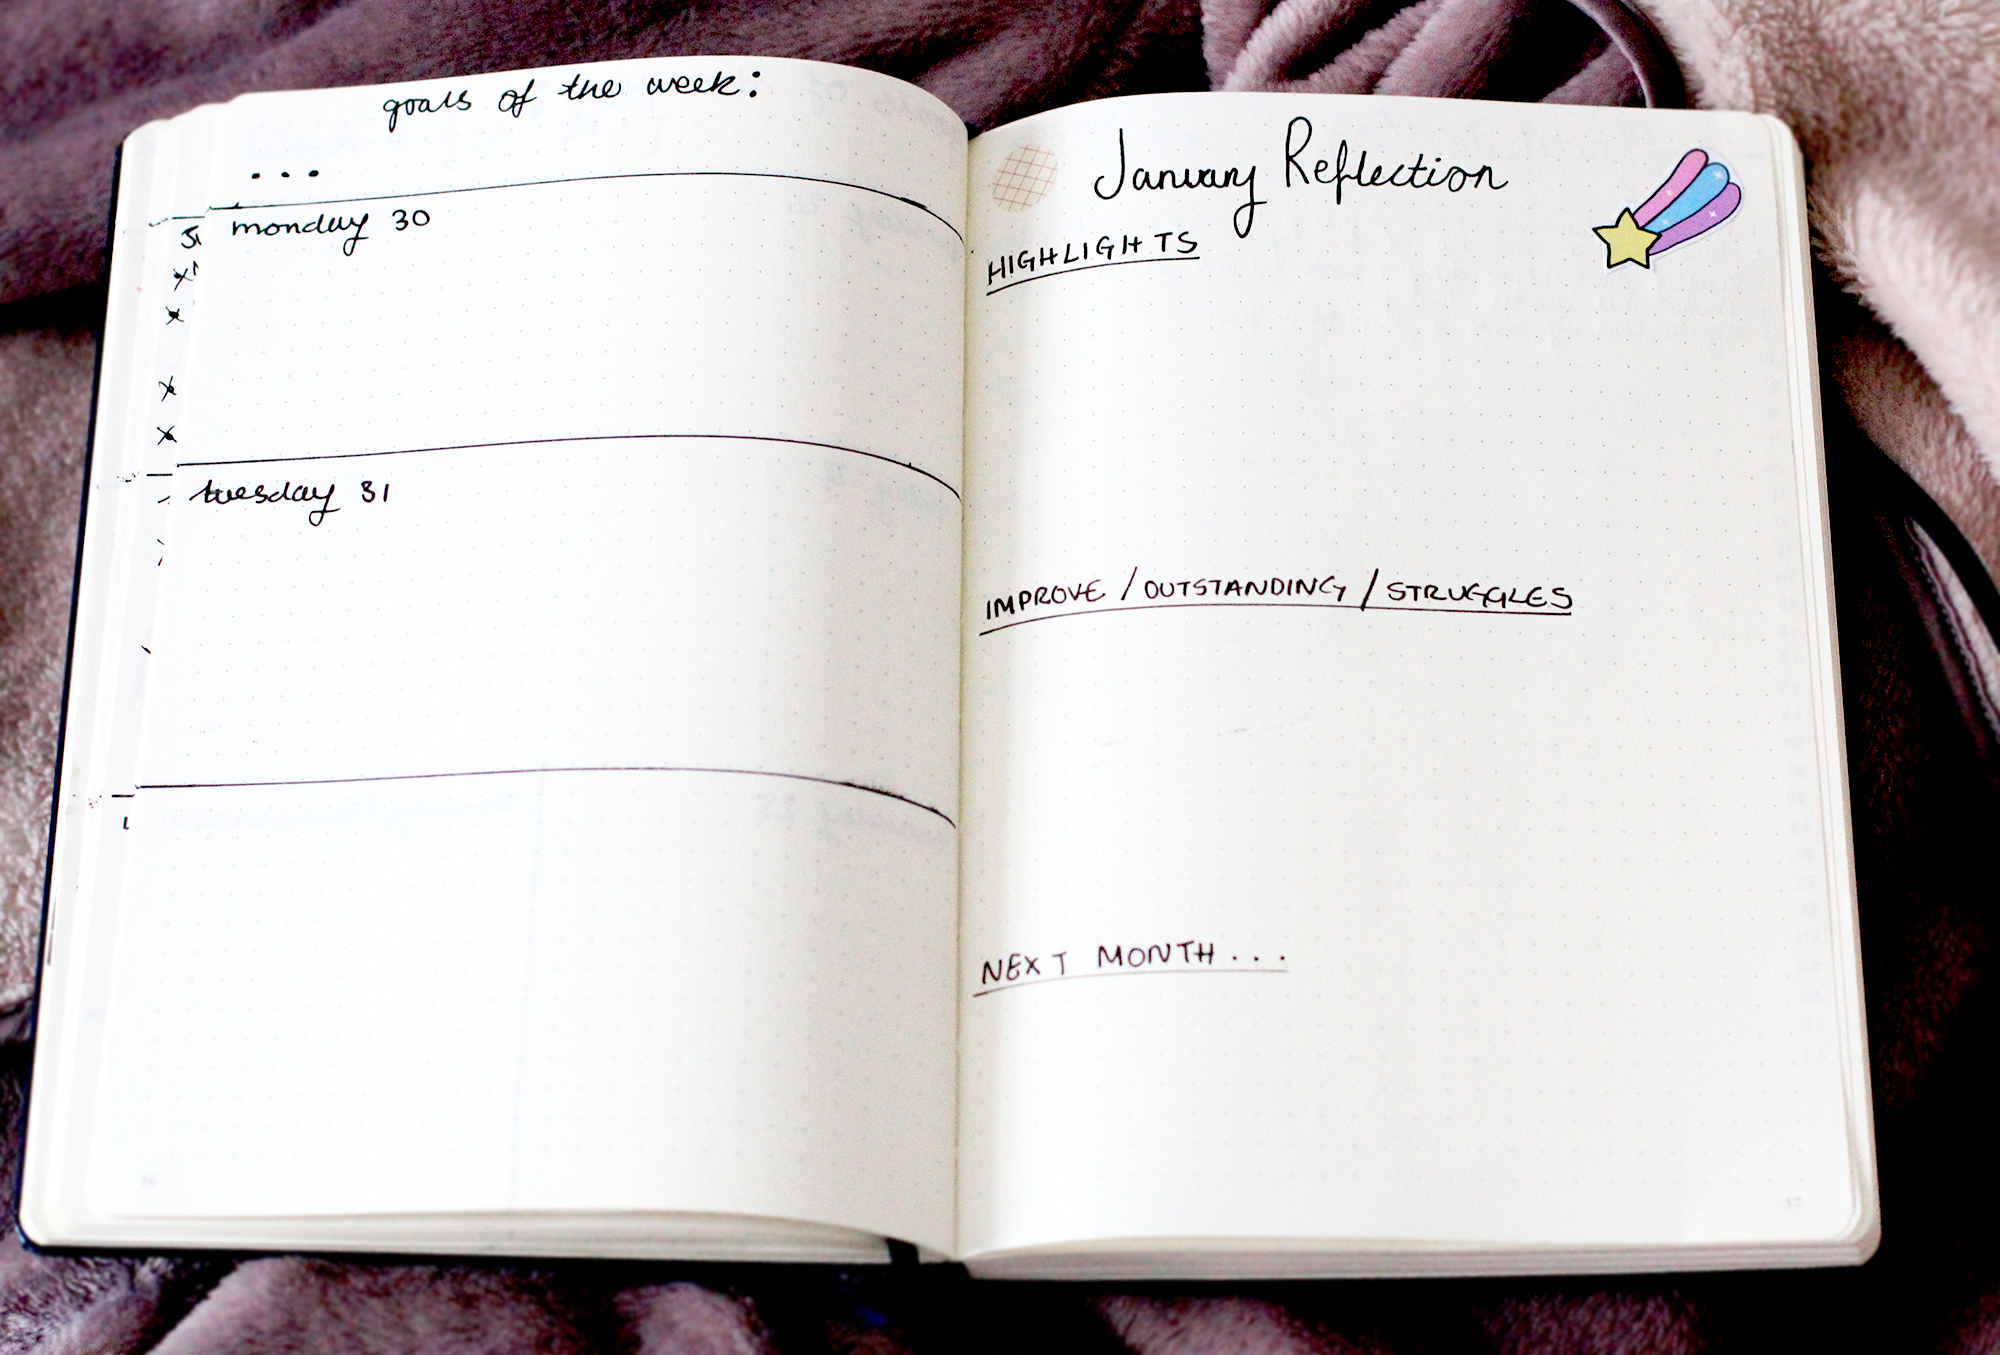 goals of the week:
...
monday 30
tuesday 31
January Reflection
HIGHLIGHTS
IMPROVE / OUTSTANDING / STRUGGLES
NEXT MONTH...
57